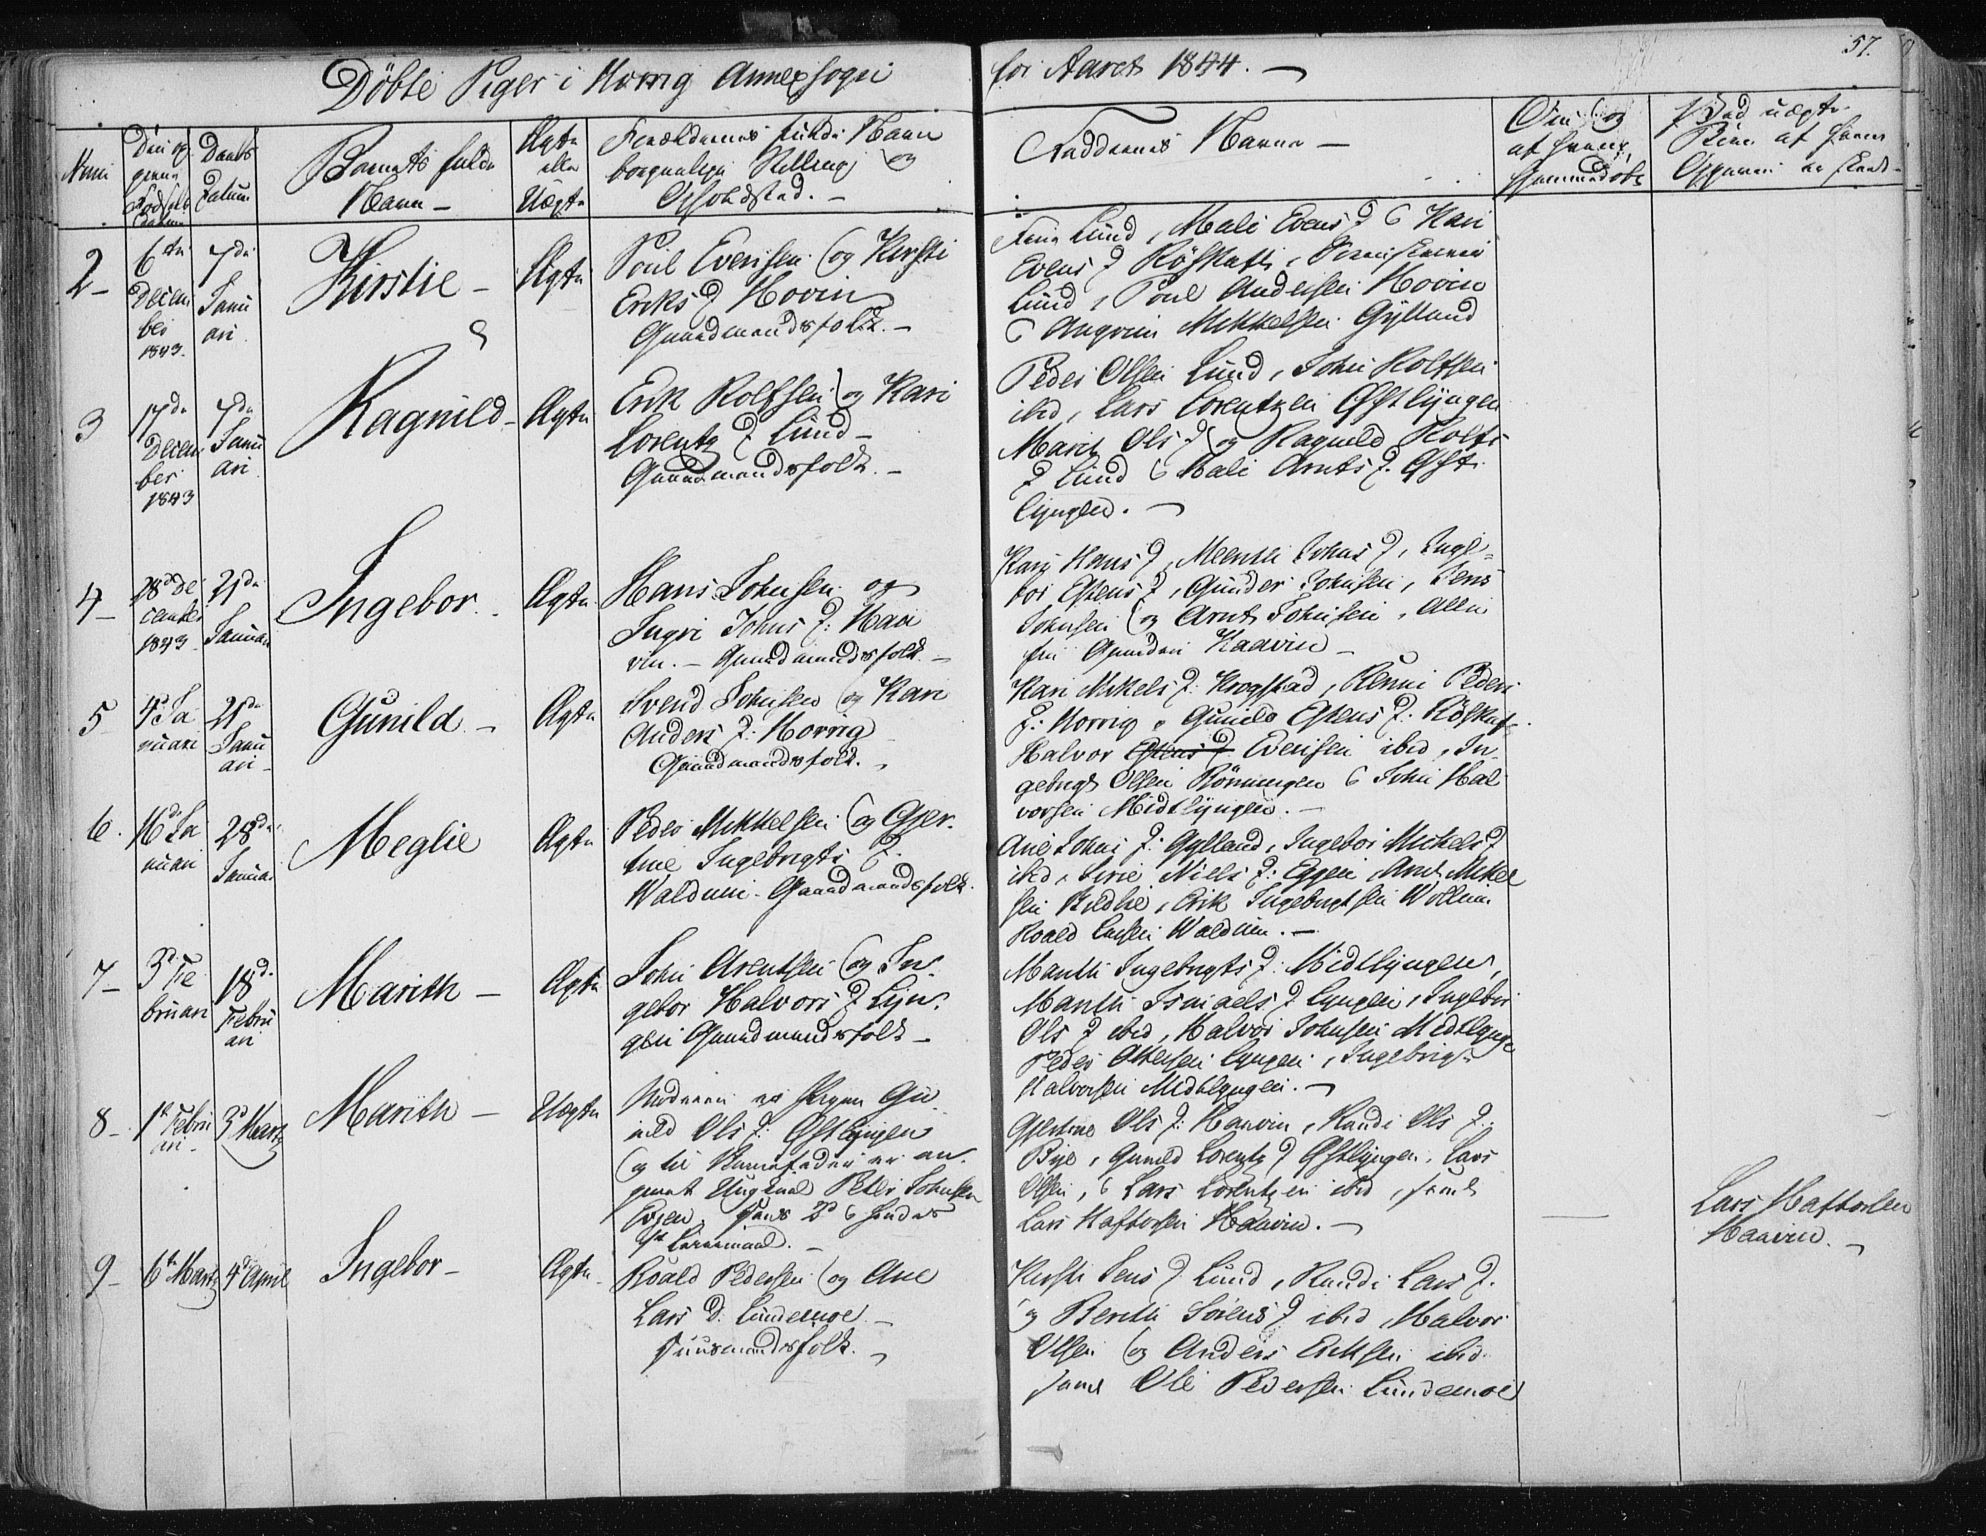 Döbte Piger i Horrig Annexsogn
for Aaret 1844. —
57.
Num
Dag og
Fødsels
Datum
Daabs
Datum
Barnets fulde
Navn —
Ægte
eller
Uægte
Forældrenes fulde Navn
borgerlige Stilling og
Opholdsted. —
Faddernes Navne —
Om og
af hvem,
hjemmedøbt
Ved uægte
Børn af hvem
Opgaven er skeed
2 —
6te
Decem
ber
1843.
7de
Janu
ari
Kirstie —
Ægte
Poul Evensen og Kirsti
Eriks D Hovin
Gaardmandsfolk. —
Lund, Mali Evens D & Kari
Evens D Röskaft,
Lund, Poul Andersen Hovin
& Angrim Mikkelsen Gylland
3
17de
Decem
ber
1843
7de
Janu
ari
Ragnild —
Ægte
Erik Rolfsen og Kari
Lorentz D Lund —
Gaardmandsfolk. —
Peder Olsen Lund, John Rolfsen
ibid, Lars Lorentzen Østlyngen
Marit Ols D og Ragnild Rolfs
D Lund & Mali Arnts D. Øst
lyngen. —
4 —
28de De
cember
1843
21de
Januari
Ingebor —
Ægte
Hans Johnsen og
Ingri Johns D: Haa
vin. — Gaardmandsfolk —
Kari Hans D, Merethe Johns D, Inge-
bor Estens D, Gunder Johnsen, Jens
Johnsen og Arnt Johnsen, alle
fra Gaarden Haavin —
5
4d Ja
nuari
21de
Janu
ari —
Gunild —
Ægte
Svend Johnsen og Kari
Anders D: Horrig
Gaardmandsfolk. —
Kari Mikels D: Krogstad, Rønni Peders
D: Horrig, Gunild Estens D: Röskaft
Halvor Estens D Evensen ibid, In
gebrigt Olsen Rönningen & John Hal
vorsen Midtlyngen. —
6.
16d Ja
nuari
28de
Januari
Meglie
Ægte
Peder Mikkelsen og Gjer-
tine Ingebrigts D:
Waldum. Gaardmandsfolk.
Ane Johns D: Gylland, Ingebor Mikels D
ibid, Sirie Niels D: Eggen, Arnt Mikel
sen Burdlie, Erik Ingebrigtsen Wollum
Roald Larsen Waldum. —
7 —
3d Fe
bruari
18d.
Febru
ari
Marith —
Ægte
John Arentsen og In-
gebor Halvors D Lyn-
gen Gaardmandsfolk —
Marith Ingebrigts D: Midtlyngen,
Marith Ismaels D Lyngen, Ingebor
Ols D ibid, Halvor Johnsen Midtlynge
Peder Ottersen Lyngen, Ingebrigt
Halvorsen Midtlyngen. —
8 —
1t Febru
ari —
3d Marts
Marith —
Uægte
Moderen er Pigen Gu
nild Ols D: Østlyngen
og til Barnefader er an-
givet Ungkarl Peder Johnsen
Evjen. Hans 2d & hendes
1st Leiermaal. —
Gjertine Ols D: Haavin, Randi Ols D:
Bye, Gunild Lorentz D Østlyngen, Lars
Olsen, & Lars Lorentzen ibid, samt
Lars Haftorsen Haavin. —
—
Lars Haftorsen
Haavin. —
9 —
6t Marts
4d April
Ingebor —
Ægte
Roald Pedersen og Ane
Lars D. Lundemoe. —
Huusmandsfolk. —
Kirsti Jens D Lund, Randi Lars D.
og Berith Sörens D ibid, Halvor
Olsen og Anders Eriksen ibid
samt Ole Pedersen Lundemoe